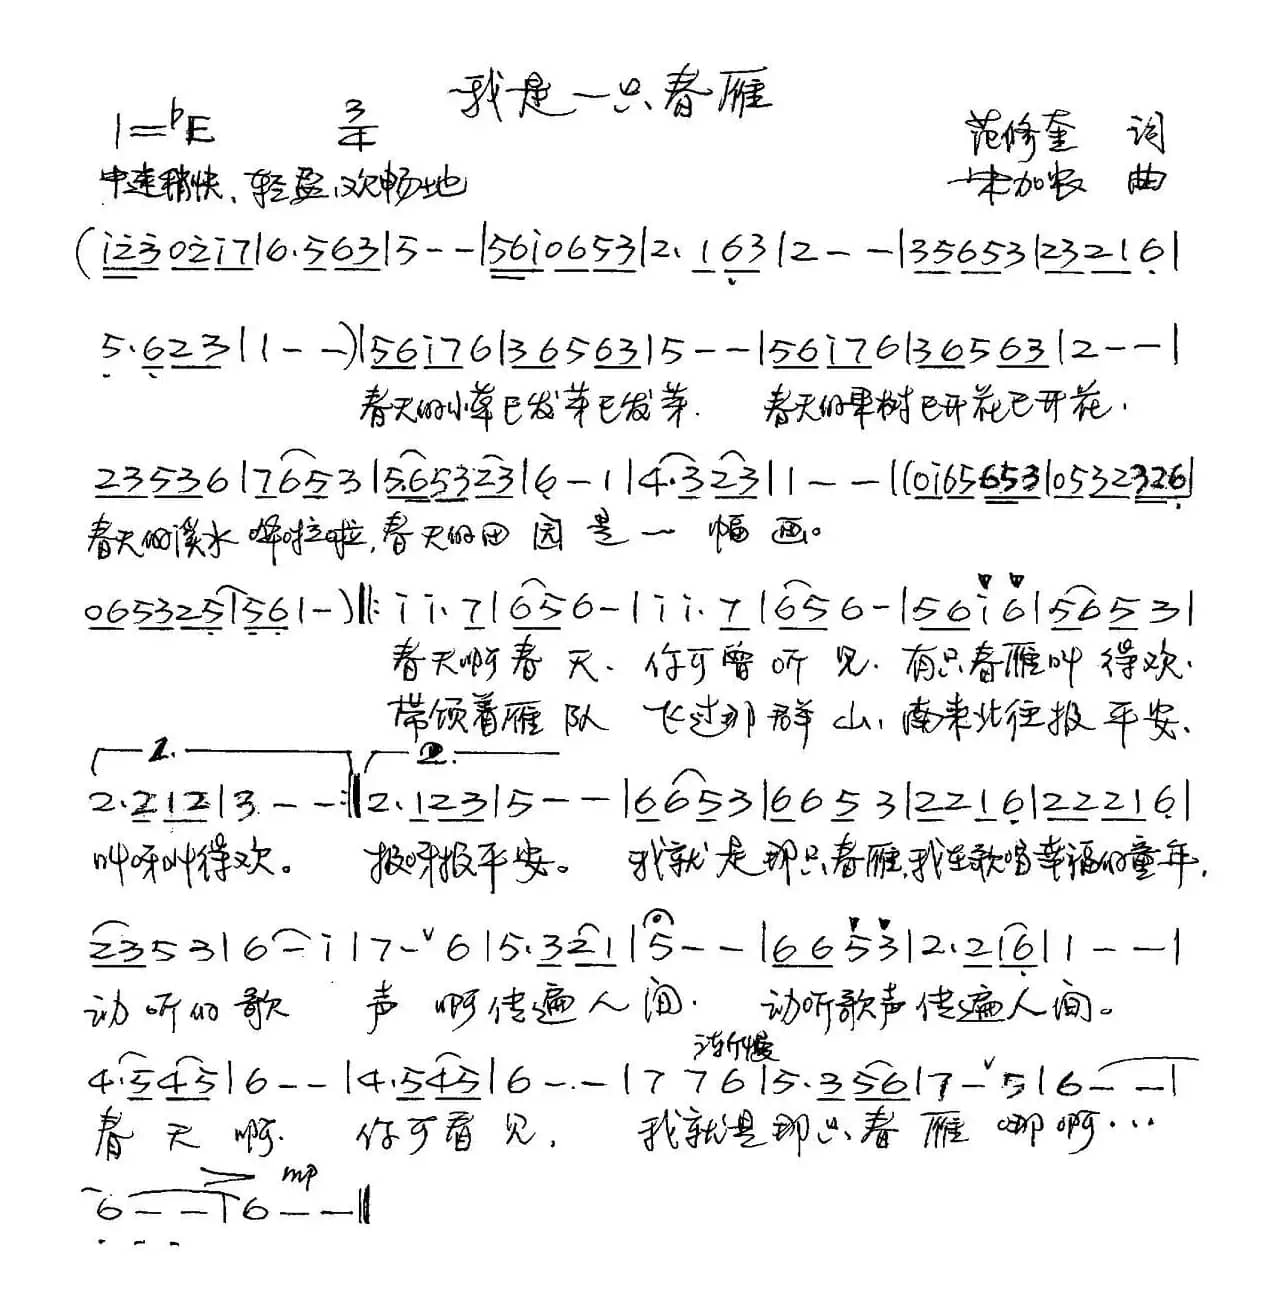 我是一只春雁
1=♭E 3/4 范修奎 词
中速稍快、轻盈、欢畅地 朱加农 曲
(i̇2̇3̇ 02̇i̇7|6·563|5--|56i̇0653|2·163|2--|35653|23216|
5·623|1--)|56i̇76|36563|5--|56i̇76|36563|2--|
春天的小草已发芽已发芽. 春天的果树已开花已开花.
23536|7653|565323|6-1|4·323|1--|(0i̇65653|0532326|
春天的溪水哗啦啦,春天的田园是一幅画。
065325|561-)‖:i̇i̇·7|656-|i̇i̇·7|656-|56i̇6|5653|
春天啊春天. 你可曾听见. 有只春雁叫得欢.
带领着雁队 飞过那群山, 南来北往报平安.
1. 2.
2·212|3--:‖2·123|5--|6653|6653|2216|22216|
叫呀叫得欢。 报呀报平安。 我就是那只春雁,我在歌唱幸福的童年,
2353|6-i̇|7-ˇ6|5·321|5--|6653|2·216|1--|
动听的歌声啊传遍人间. 动听歌声传遍人间。
渐慢
4·545|6--|4·545|6--|776|5·356|7-ˇ5|6--|
春天啊. 你可看见, 我就是那只春雁哪啊···
mp
6--|6--‖